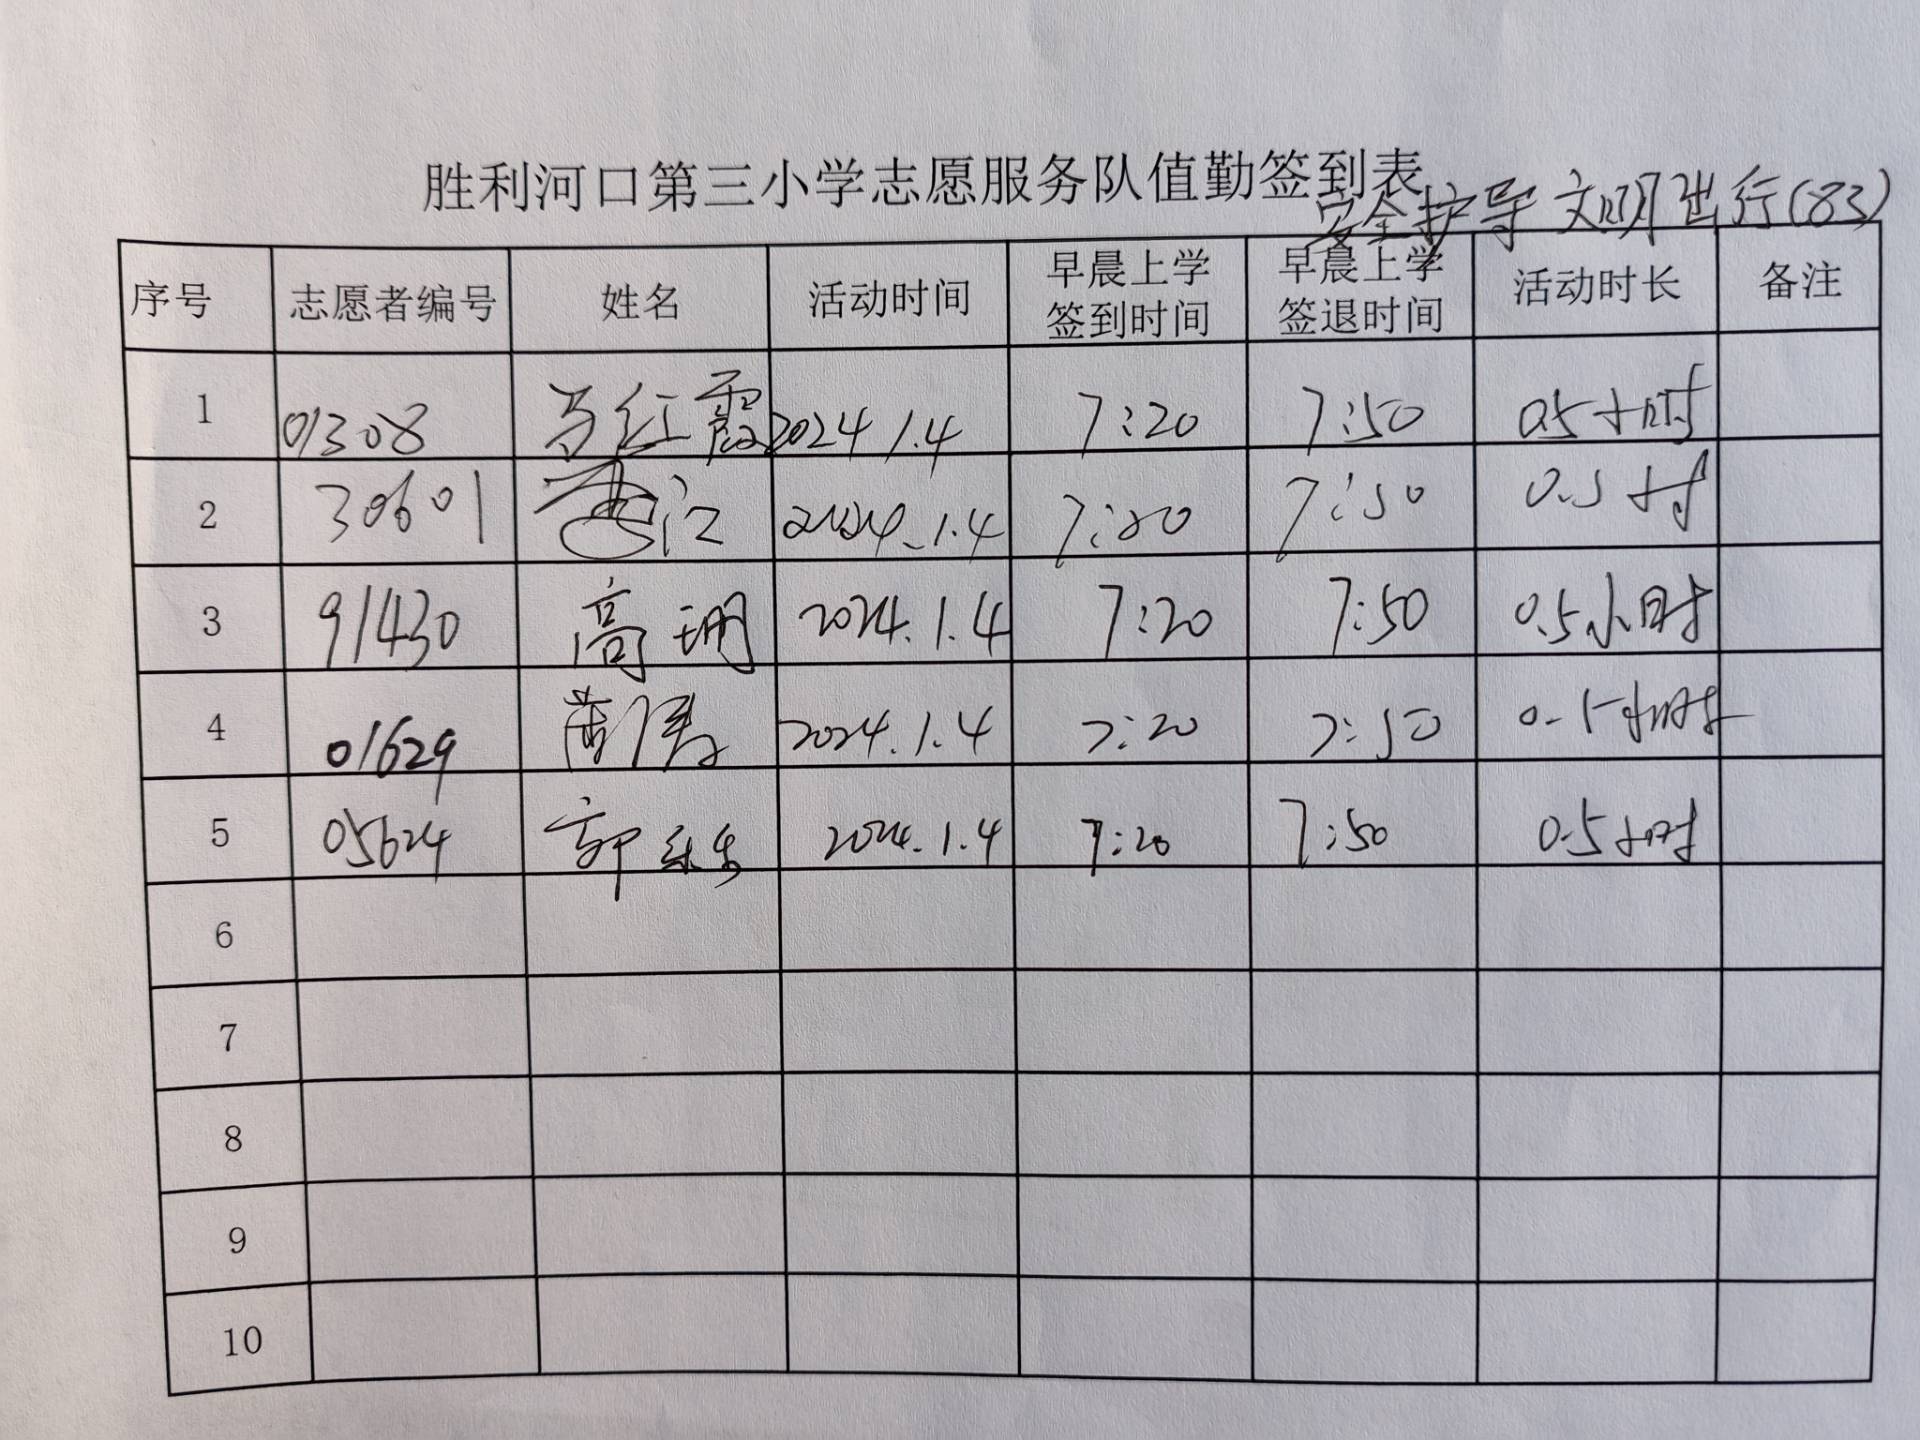 胜利河口第三小学志愿服务队值勤签到表
安全护导 文明出行(83)
序号 志愿者编号 姓名 活动时间 早晨上学签到时间 早晨上学签退时间 活动时长 备注
1 01308 马红霞 2024 1.4 7:20 7:50 0.5小时
2 30601 江 2024.1.4 7:20 7:50 0.5小时
3 91430 高珊 2024.1.4 7:20 7:50 0.5小时
4 01629 2024.1.4 7:20 7:50 0.5小时
5 05624 郭 2024.1.4 7:20 7:50 0.5小时
6
7
8
9
10